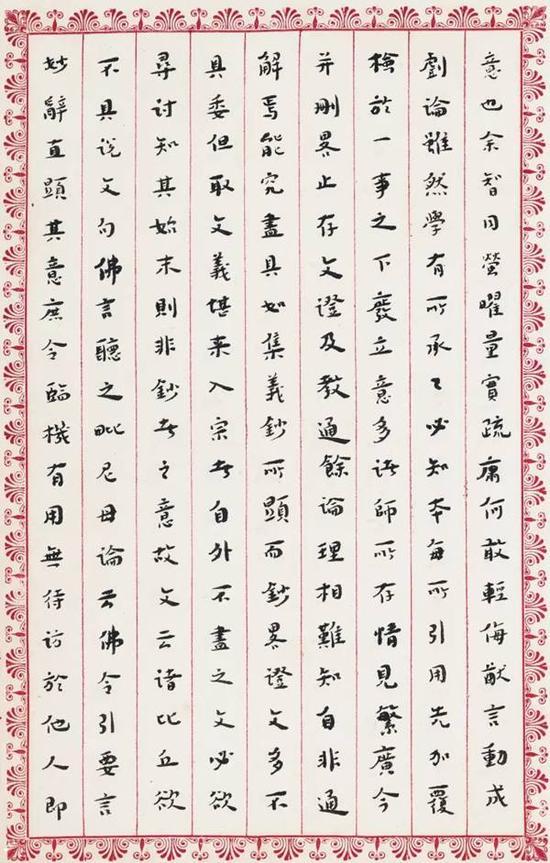 意也余智同螢曜量實疏庸何敢輕侮猷言動成
戲論雖然學有所承承必知本每所引用先加覆
檢於一事之下廢立意多諸師所存情見繁廣今
并刪畧止存文證及教通餘論理相難知自非通
解焉能究盡具如集義鈔所顯而鈔畧證文多不
具委但取文義堪來入宗者自外不盡之文必欲
尋討知其始末則非鈔者之意故文云諸比丘欲
不具說文句佛言聽之毗尼母論云佛令引要言
妙辭直顯其意庶令臨機有用無待訪於他人即